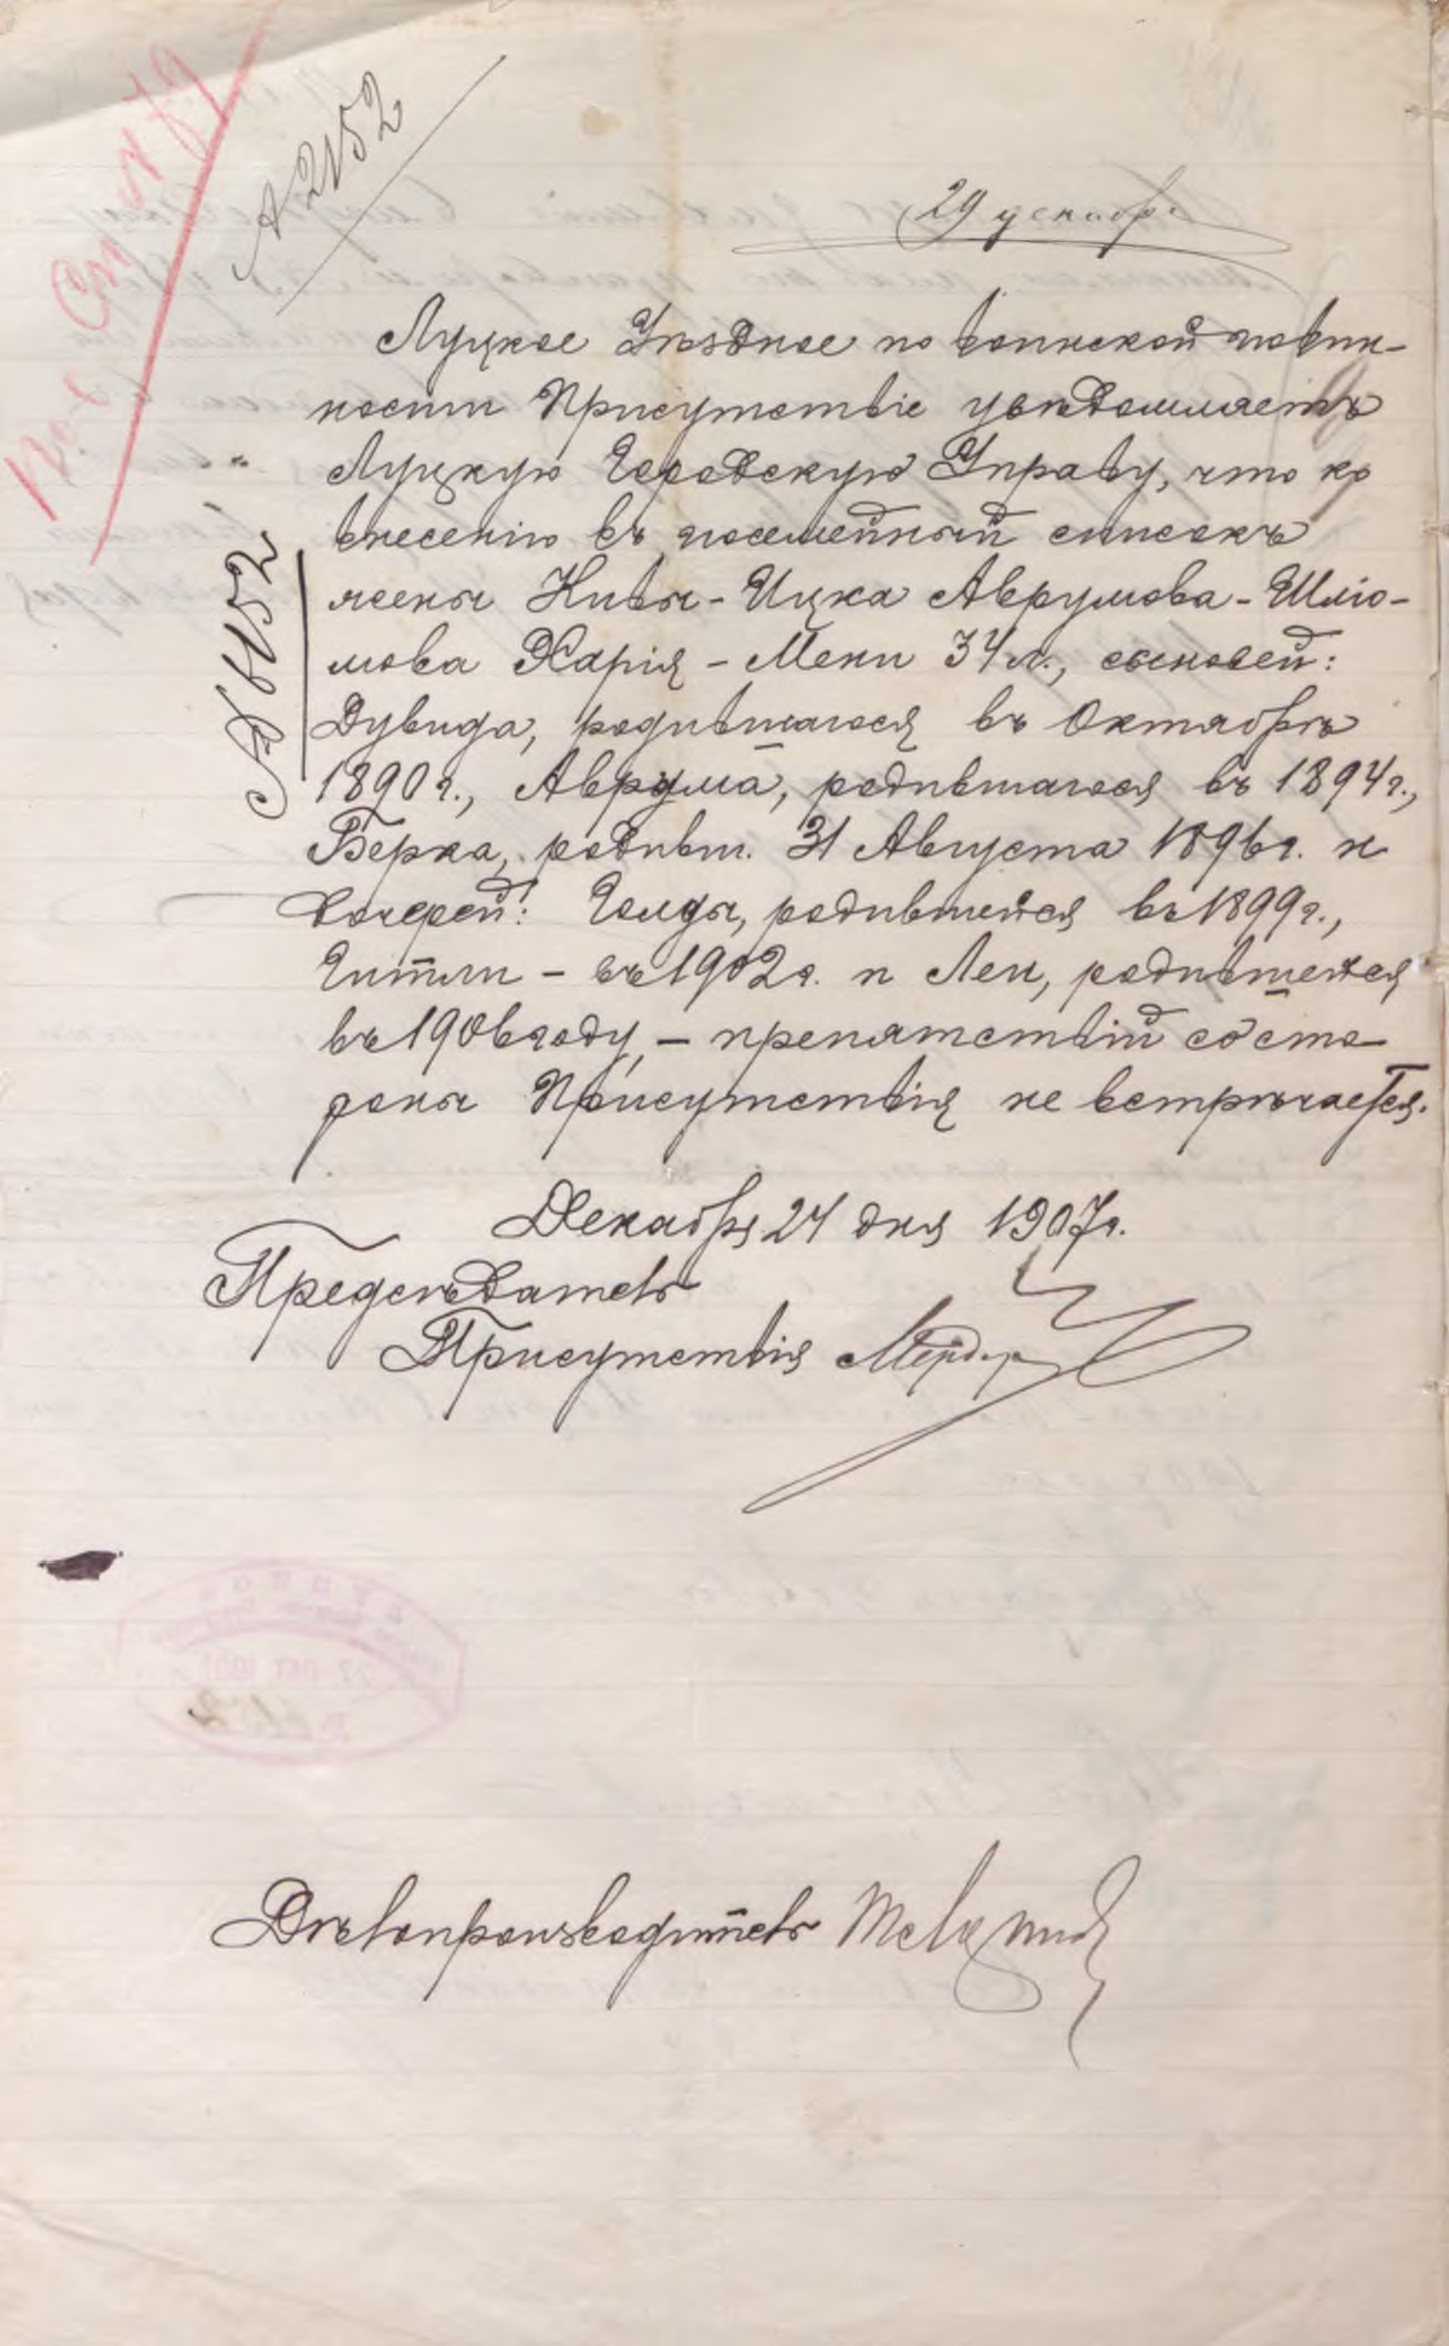 № 2152
29 декабря
Луцкое Уѣздное по воинской повин-
ности Присутствіе увѣдомляетъ
Луцкую Городскую Управу, что ко
внесенію въ посемейный списокъ
№ 6152
жены Кивы-Ицка Аврумова-Шліо-
мова Харія-Меки 34 л., сыновей:
Дувида, родившагося въ Октябрѣ
1890 г., Аврума, родившагося въ 1894 г.,
Берка, родивш. 31 Августа 1896 г. и
дочерей: Голды, родившейся въ 1899 г.,
Гитли – въ 1902 г. и Леи, родившейся
въ 1906 году, – препятствій со сто-
роны Присутствія не встрѣчается.
Декабря 24 дня 1907 г.
Предсѣдатель
Присутствія
Дѣлопроизводитель